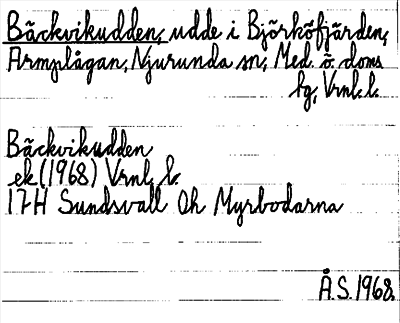 Bäckvikudden, udde i Björköfjärden,
Armplågan, Njurunda sn, Med. ö. doms
hg, Vrnl. l.
Bäckvikudden
ek (1968) Vrnl. l.
17H Sundsvall 0h Myrbodarna
Å.S. 1968.